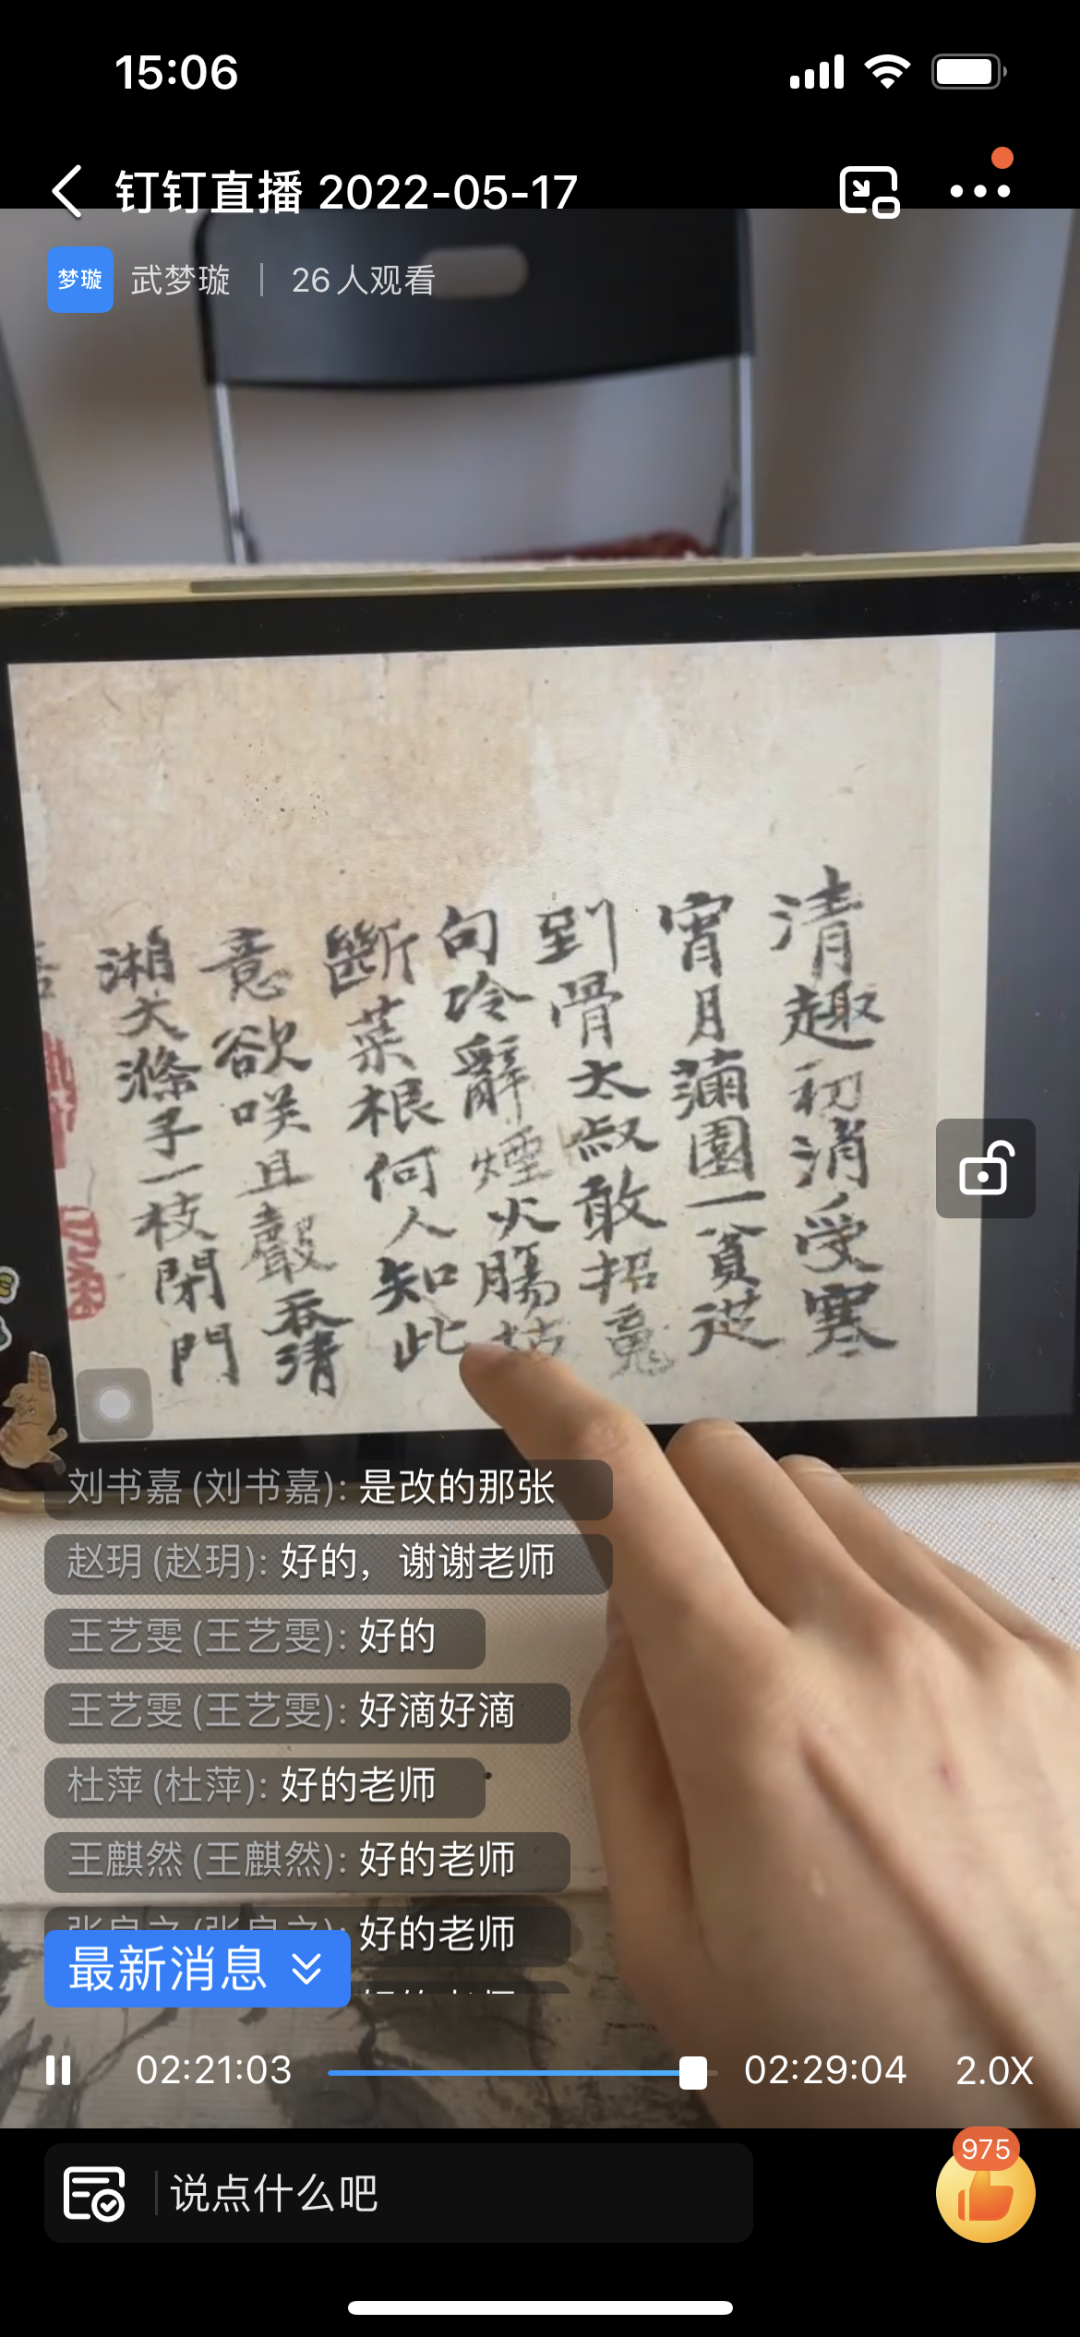 15:06
钉钉直播 2022-05-17
梦璇
武梦璇 | 26人观看
清趣初消受寒
宵月满園一貧從
到骨太叔敢招
句冷辭煙火腸
斷菜根何人知此
意欲咲且聲吞清
湘大滌子一枝閉門
刘书嘉(刘书嘉): 是改的那张
赵玥(赵玥): 好的，谢谢老师
王艺雯(王艺雯): 好的
王艺雯(王艺雯): 好滴好滴
杜萍(杜萍): 好的老师
王麒然(王麒然): 好的老师
好的老师
最新消息
02:21:03
02:29:04
2.0X
975
说点什么吧